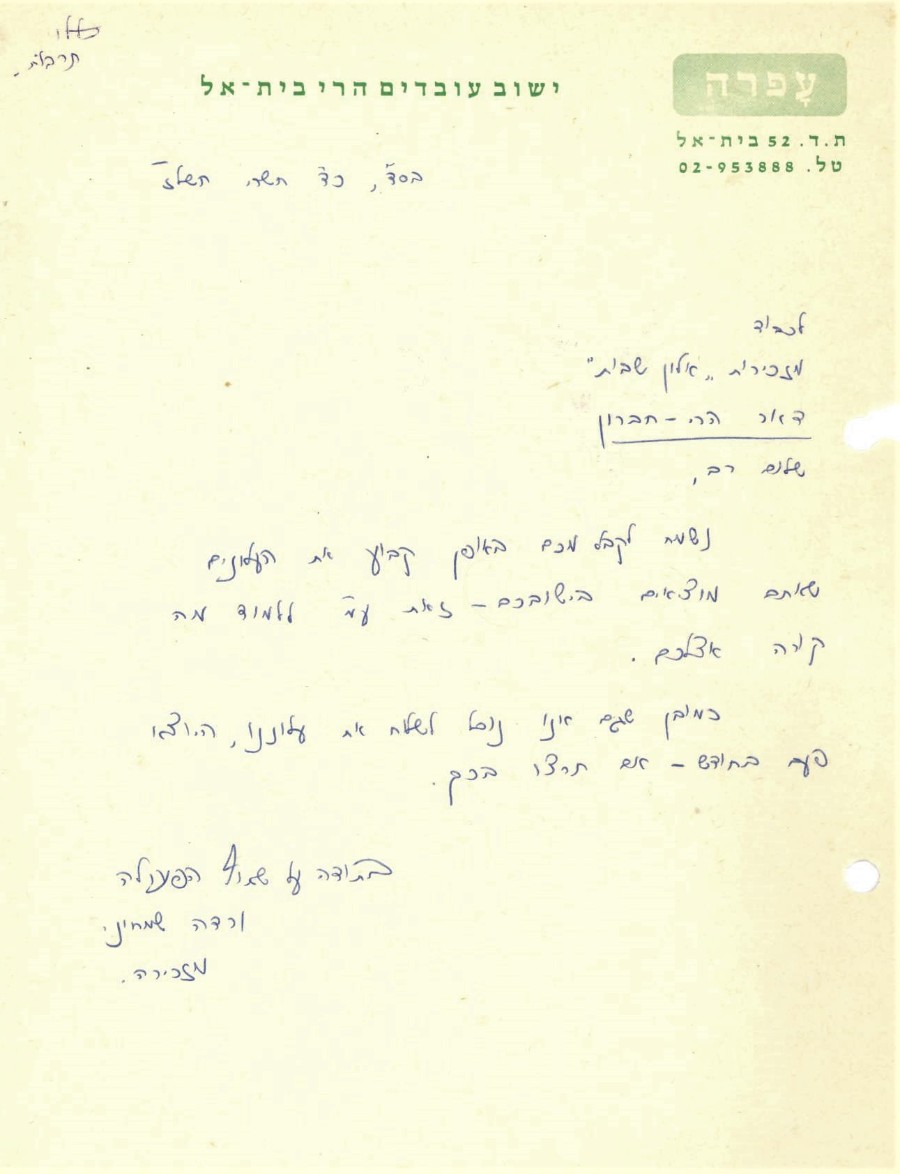 תרבות.
עָפרה
ישוב עובדים הרי בית-אל
ת.ד. 52 בית-אל
טל. 02-953888
בסד", כד" תשרי תשלז"
לכבוד
מזכירות "אלון שבות"
דאר הרי - חברון
שלום רב,
נשמח לקבל מכם באופן קבוע את העלונים
שאתם מוציאים בישובכם - זאת עמ" ללמוד מה
קורה אצלכם.
כמובן שגם אנו נוכל לשלוח את עלוננו, היוצא
פעם בחודש - אם תרצו בכך.
בתודה על שתוף הפעולה
ורדה שמחיני
מזכירה.